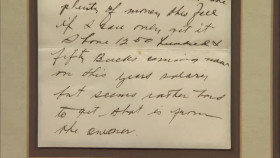 plenty of money this Fall
if I can only get it
I have 1250 hundred &
fifty Bucks coming now
on this years salary
but seems rather hard
to get that is from
the owner.